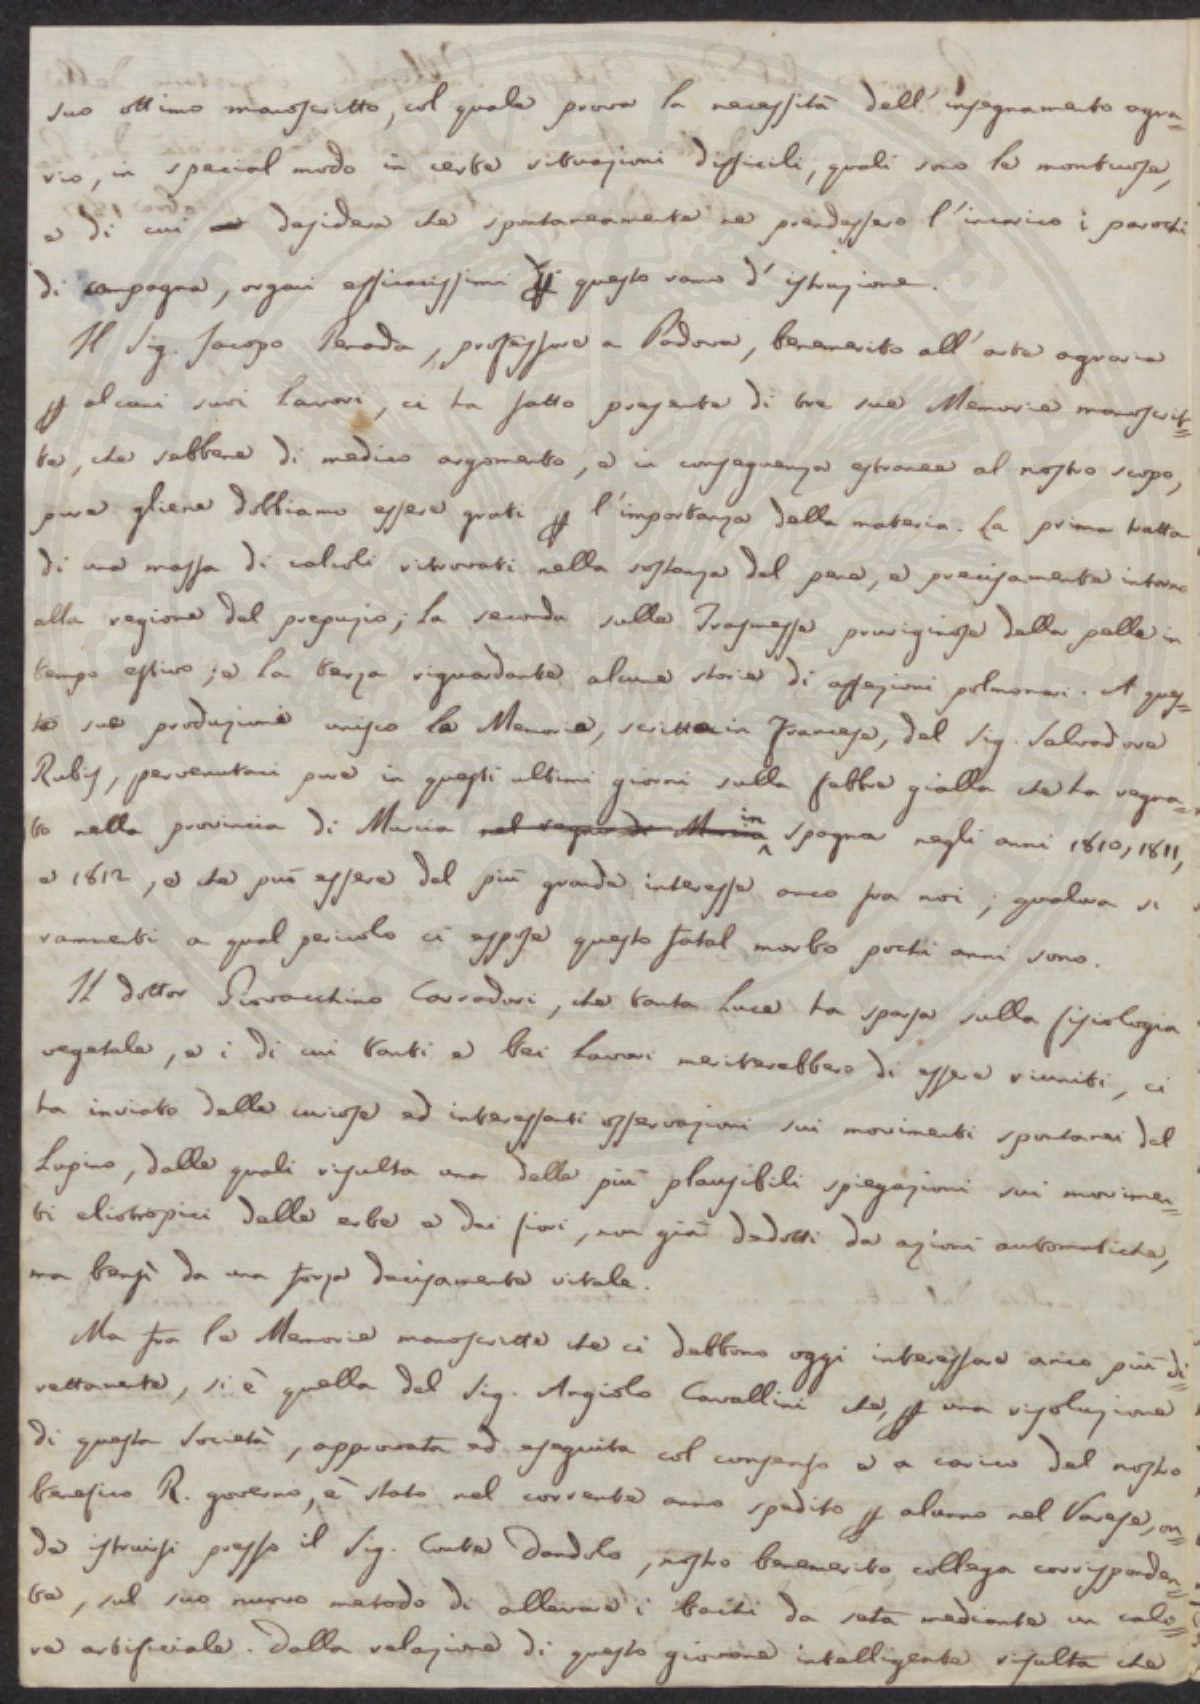 suo ottimo manoscritto, col quale prova la necessità dell'insegnamento agra=
rio, in special modo in certe situazioni difficili, quali sono le montuose,
e di cui desidera che spontaneamente ne prendessero l'incarico i parochi
di campagna, organi efficacissimi questo ramo d'istruzione.
Il Sig. Jacopo Penada, professore a Padova, benemerito all'arte agraria
ꝑ alcuni suoi lavori, ci ha fatto presente di tre sue Memorie manoscrit=
te, che sebbene di medico argomento, e in conseguenza estranee al nostro scopo,
pure gliene dobbiamo essere grati ꝑ l'importanza della materia. La prima tratta
di una massa di calcoli ritrovati nella sostanza del pene, e precisamente intorno
alla regione del prepuzio; la seconda sulle Trasmesse pruriginose della pelle in
tempo estivo; e la terza riguardante alcune storie di affezioni polmonari. A ques=
te sue produzioni unisco la Memoria, scritta in Francese, del Sig. Salvadore
Rubis, pervenutaci pure in questi ultimi giorni sulla febbre gialla che ha regna=
to nella provincia di Murcia nel regno di Murcia in Spagna negli anni 1810, 1811,
e 1812, e che può essere del più grande interesse anco fra noi; qualora si
rammenti a qual pericolo ci espose questo fatal morbo pochi anni sono.
Il dottor Giovacchino Carradori, che tanta luce ha sparsa sulla fisiologia
vegetale, e i di cui tanti e bei lavori meriterebbero di essere riuniti, ci
ha inviato delle curiose ed interessanti osservazioni sui movimenti spontanei del
Lupino, dalle quali risulta una delle più plausibili spiegazioni sui movimen=
ti eliotropici delle erbe e dei fiori, non già dedotti da azioni automatiche,
ma bensì da una forza decisamente vitale.
Ma fra le Memorie manoscritte che ci debbono oggi interessare anco più di=
rettamente, si è quella del Sig. Angiolo Cavallini che, ꝑ una risoluzione
di questa Società, approvata ed eseguita col consenso e a carico del nostro
benefico R. governo, è stato nel corrente anno spedito ꝑ alunno nel Varese, on=
de istruirsi presso il Sig. Conte Dandolo, nostro benemerito collega corrisponden=
te, sul suo nuovo metodo di allevare i bachi da seta mediante un calo=
re artificiale. Dalla relazione di questo giovane intelligente risulta che